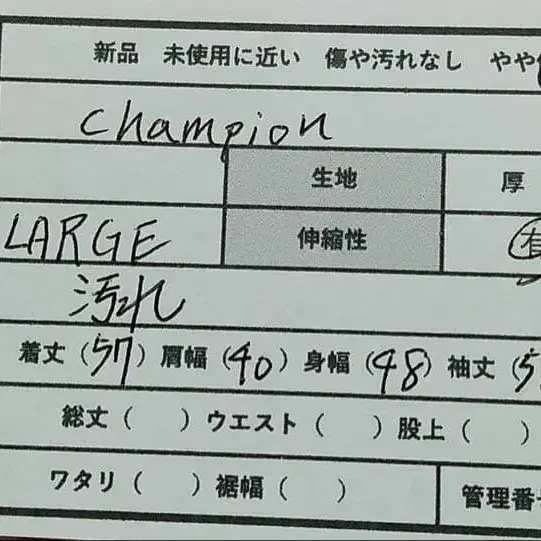 新品 未使用に近い 傷や汚れなし やや
Champion
生地 厚
LARGE 伸縮性 有
汚れ
着丈(57) 肩幅(40) 身幅(48) 袖丈(5
総丈( ) ウエスト( ) 股上( )
ワタリ( ) 裾幅( ) 管理番